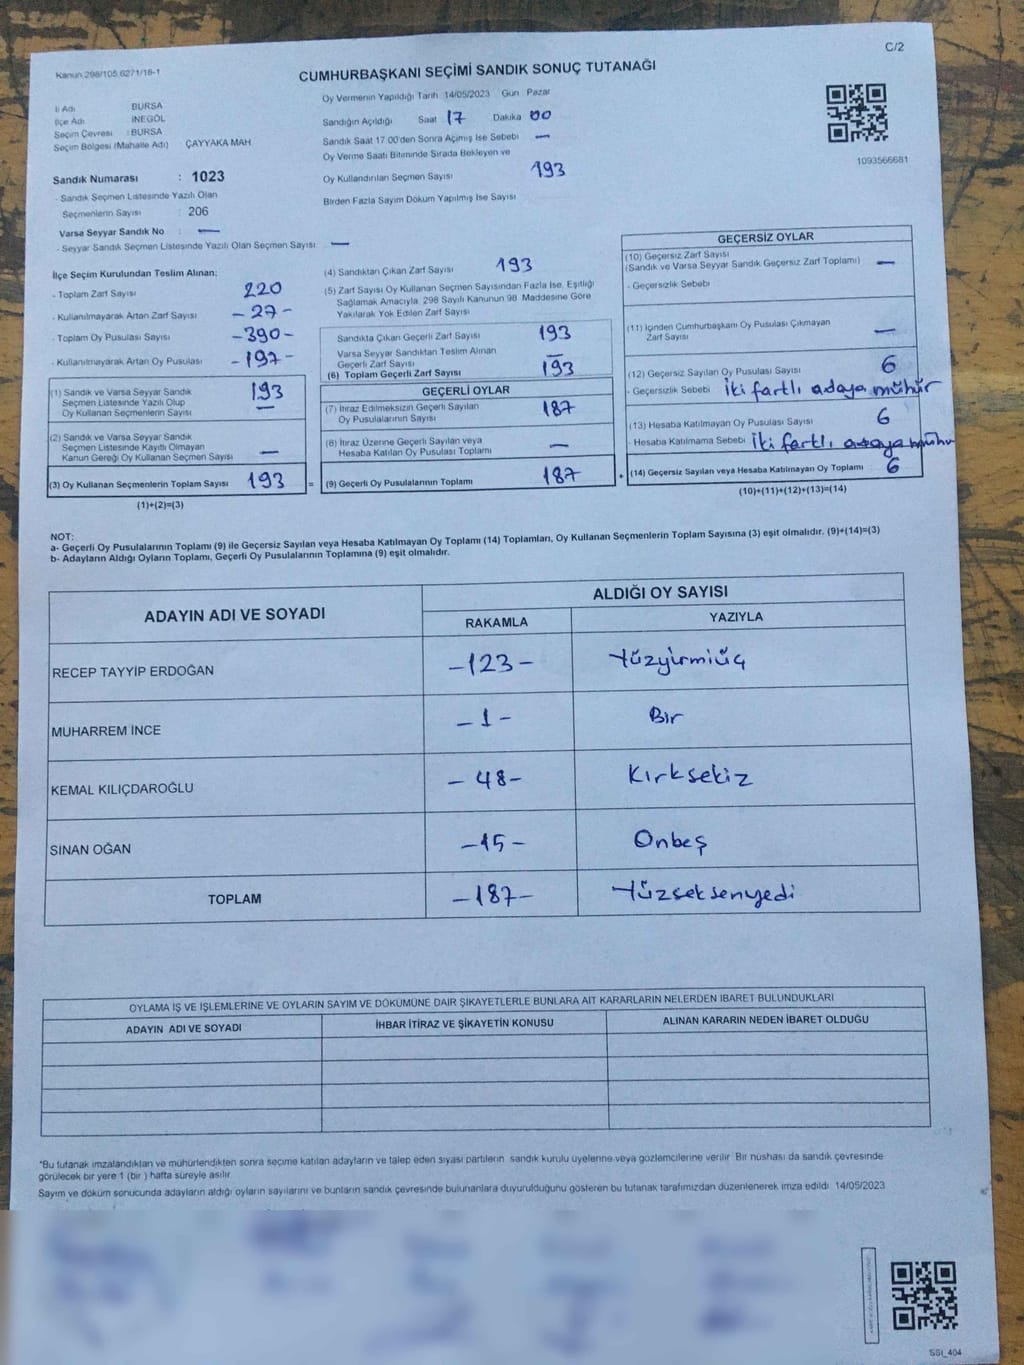 C/2
Kanun 298/105 6271/18-1
CUMHURBAŞKANI SEÇİMİ SANDIK SONUÇ TUTANAĞI
İl Adı BURSA
İlçe Adı İNEGÖL
Seçim Çevresi : BURSA
Seçim Bölgesi (Mahalle Adı) ÇAYYAKA MAH
Sandık Numarası : 1023
- Sandık Seçmen Listesinde Yazılı Olan
Seçmenlerin Sayısı : 206
Varsa Seyyar Sandık No —
- Seyyar Sandık Seçmen Listesinde Yazılı Olan Seçmen Sayısı: —
Oy Vermenin Yapıldığı Tarih 14/05/2023 Gün Pazar
Sandığın Açıldığı Saat 17 Dakika 00
Sandık Saat 17:00'den Sonra Açımış İse Sebebi —
Oy Verme Saati Bitiminde Sırada Bekleyen ve
Oy Kullandırılan Seçmen Sayısı 193
Birden Fazla Sayım Döküm Yapılmış İse Sayısı
1093566681
İlçe Seçim Kurulundan Teslim Alınan:
- Toplam Zarf Sayısı 220
- Kullanılmayarak Artan Zarf Sayısı - 27 -
- Toplam Oy Pusulası Sayısı - 390 -
- Kullanılmayarak Artan Oy Pusulası - 197 -
(1) Sandık ve Varsa Seyyar Sandık
Seçmen Listesinde Yazılı Olup
Oy Kullanan Seçmenlerin Sayısı 193 —
(2) Sandık ve Varsa Seyyar Sandık
Seçmen Listesinde Kayıtlı Olmayan
Kanun Gereği Oy Kullanan Seçmen Sayısı —
(3) Oy Kullanan Seçmenlerin Toplam Sayısı 193 =
(1)+(2)=(3)
(4) Sandıktan Çıkan Zarf Sayısı 193
(5) Zarf Sayısı Oy Kullanan Seçmen Sayısından Fazla İse, Eşitliği
Sağlamak Amacıyla, 298 Sayılı Kanunun 98. Maddesine Göre
Yakılarak Yok Edilen Zarf Sayısı
Sandıkta Çıkan Geçerli Zarf Sayısı 193
Varsa Seyyar Sandıktan Teslim Alınan
Geçerli Zarf Sayısı —
(6) Toplam Geçerli Zarf Sayısı 193
GEÇERLİ OYLAR
(7) İtiraz Edilmeksizin Geçerli Sayılan
Oy Pusulalarının Sayısı 187
(8) İtiraz Üzerine Geçerli Sayılan veya
Hesaba Katılan Oy Pusulası Toplamı —
(9) Geçerli Oy Pusulalarının Toplamı 187 +
GEÇERSİZ OYLAR
(10) Geçersiz Zarf Sayısı
(Sandık ve Varsa Seyyar Sandık Geçersiz Zarf Toplamı) —
- Geçersizlik Sebebi
(11) İçinden Cumhurbaşkanı Oy Pusulası Çıkmayan
Zarf Sayısı —
(12) Geçersiz Sayılan Oy Pusulası Sayısı 6
- Geçersizlik Sebebi İki fartlı adaya mühür
(13) Hesaba Katılmayan Oy Pusulası Sayısı 6
- Hesaba Katılmama Sebebi İki fartlı adaya mühü
(14) Geçersiz Sayılan veya Hesaba Katılmayan Oy Toplamı 6
(10)+(11)+(12)+(13)=(14)
NOT:
a- Geçerli Oy Pusulalarının Toplamı (9) ile Geçersiz Sayılan veya Hesaba Katılmayan Oy Toplamı (14) Toplamları, Oy Kullanan Seçmenlerin Toplam Sayısına (3) eşit olmalıdır. (9)+(14)=(3)
b- Adayların Aldığı Oyların Toplamı, Geçerli Oy Pusulalarının Toplamına (9) eşit olmalıdır.
ADAYIN ADI VE SOYADI
ALDIĞI OY SAYISI
RAKAMLA YAZIYLA
RECEP TAYYİP ERDOĞAN -123- Yüzyirmiüç
MUHARREM İNCE -1- Bir
KEMAL KILIÇDAROĞLU -48- Kırksekiz
SİNAN OĞAN -15- Onbeş
TOPLAM -187- Yüzseksenyedi
OYLAMA İŞ VE İŞLEMLERİNE VE OYLARIN SAYIM VE DÖKÜMÜNE DAİR ŞİKAYETLERLE BUNLARA AİT KARARLARIN NELERDEN İBARET BULUNDUKLARI
ADAYIN ADI VE SOYADI İHBAR İTİRAZ VE ŞİKAYETİN KONUSU ALINAN KARARIN NEDEN İBARET OLDUĞU
*Bu tutanak imzalandıktan ve mühürlendikten sonra seçime katılan adayların ve talep eden siyasi partilerin sandık kurulu üyelerine veya gözlemcilerine verilir. Bir nüshası da sandık çevresinde
görülecek bir yere 1 (bir ) hafta süreyle asılır.
Sayım ve döküm sonucunda adayların aldığı oyların sayılarını ve bunların sandık çevresinde bulunanlara duyurulduğunu gösteren bu tutanak tarafımızdan düzenlenerek imza edildi. 14/05/2023
SSI_404